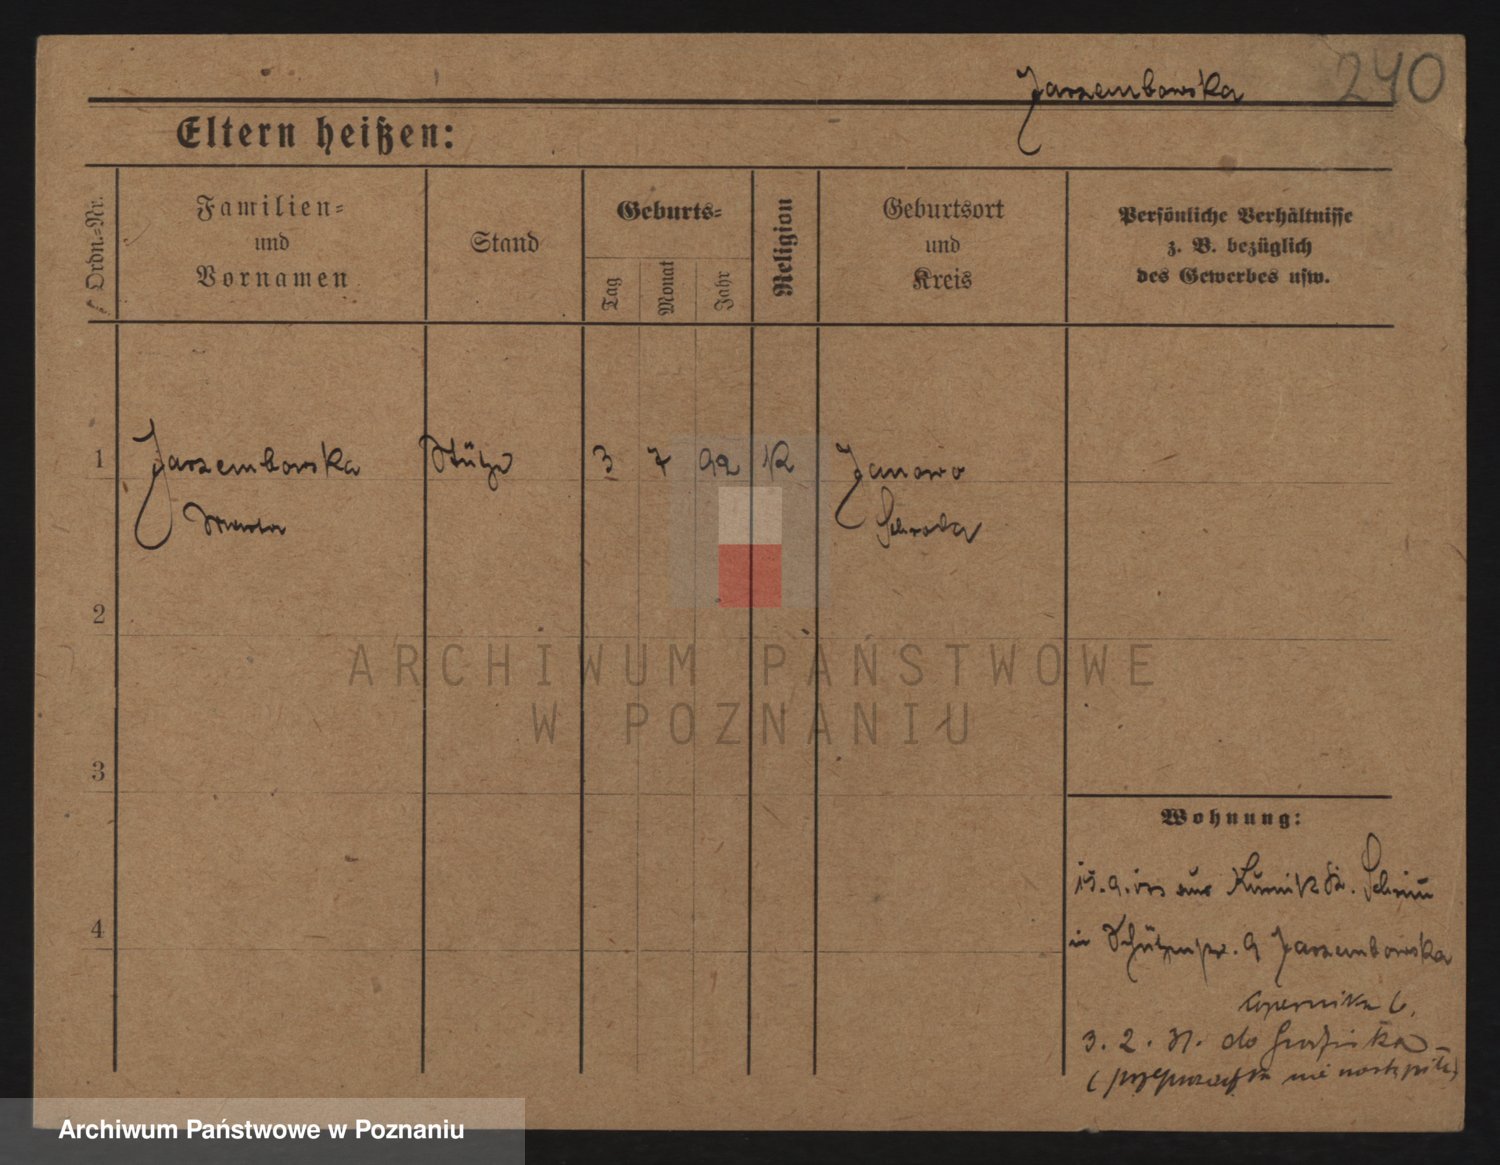 240
Jarzembowska
Eltern heißen:
Ordn.-Nr.
Familien-
und
Vornamen
Stand
Geburts-
Tag
Monat
Jahr
Religion
Geburtsort
und
Kreis
Persönliche Verhältnisse
z. B. bezüglich
des Gewerbes usw.
1 Jarzembowska Stütze 3 7 92 K Janowo
Schroda
2
3
4
Wohnung:
aus Kurnik Kr. Schrim
in 9 Jarzembowska
Copernika 6.
3. 2. 31. do
nie nastąpiła)
ARCHIWUM PAŃSTWOWE
W POZNANIU
Archiwum Państwowe w Poznaniu